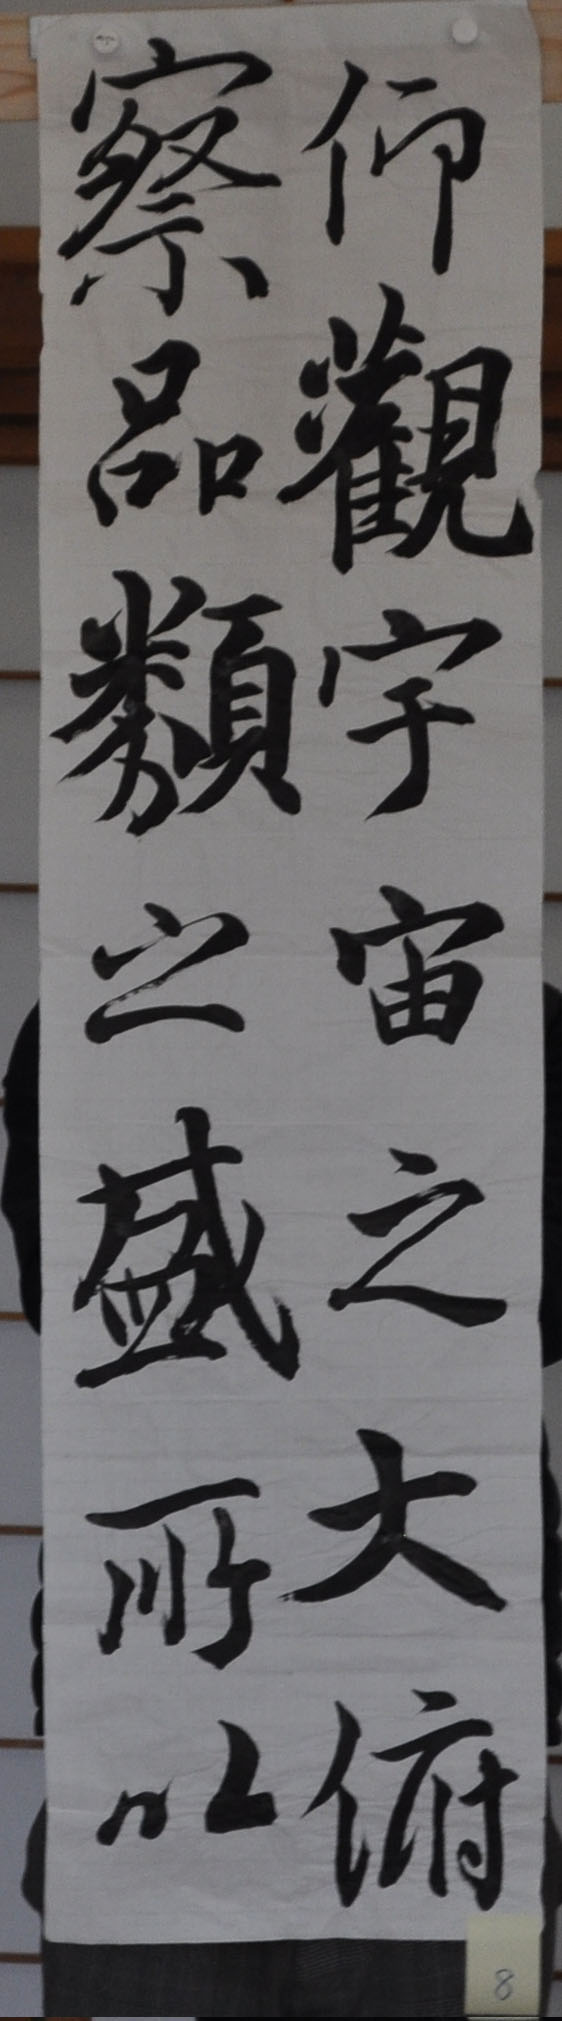 仰觀宇宙之大俯
察品類之盛所以
8